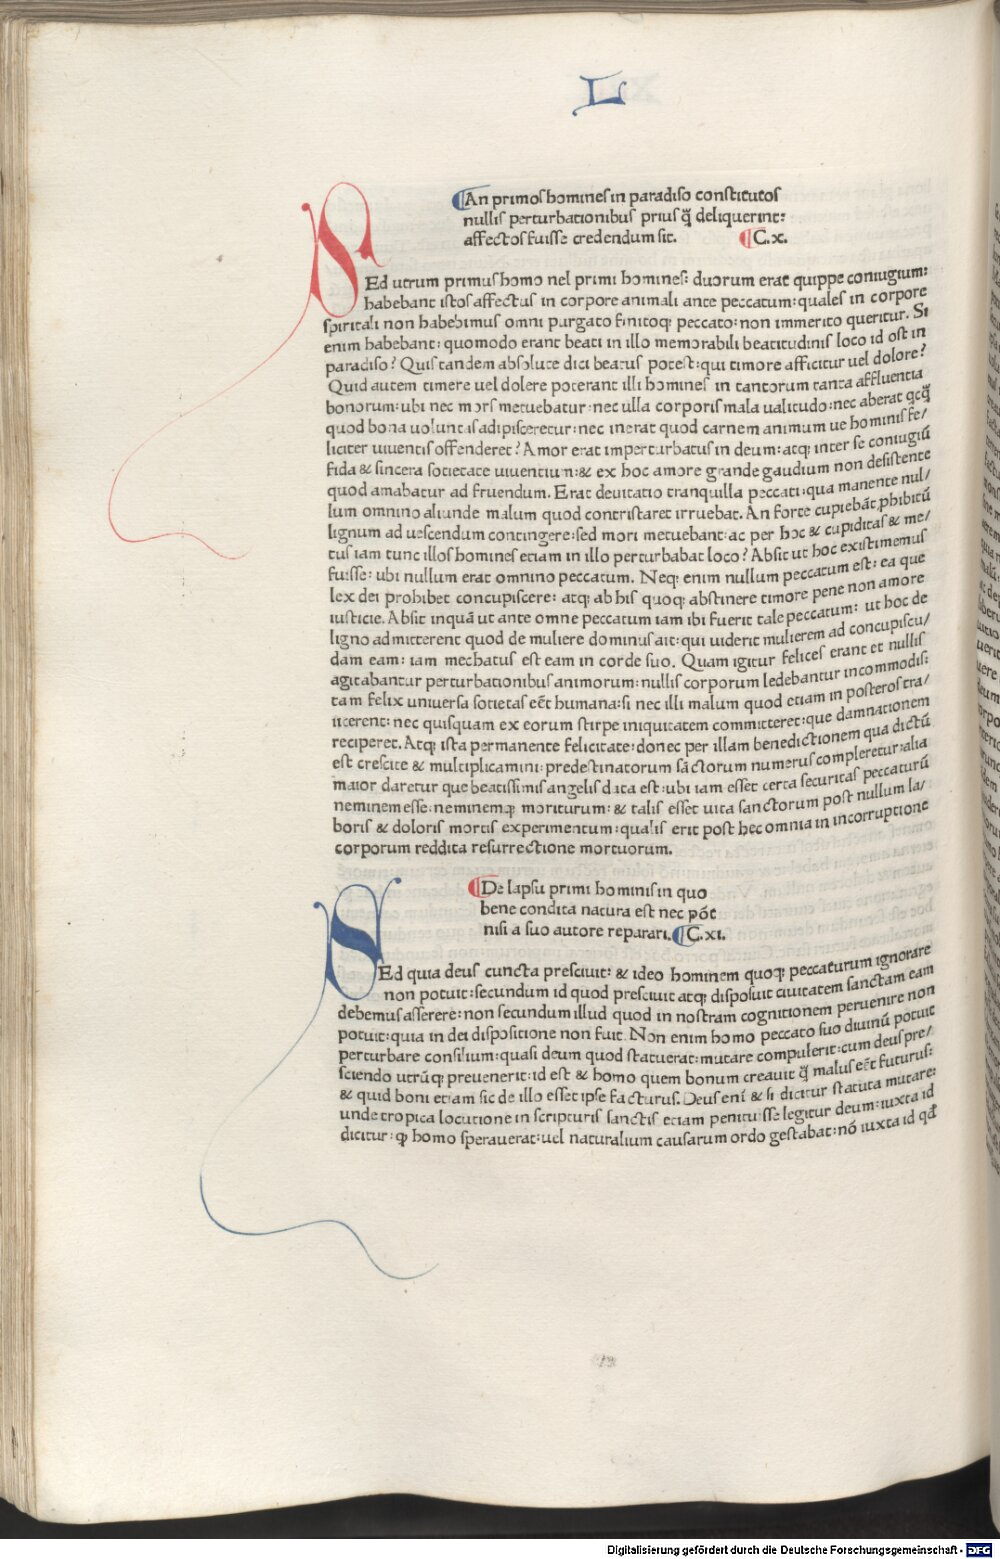 L
¶An primos homines in paradiso constitutos
nullis perturbationibus prius q̃ deliquerint:
affectos fuisse credendum sit. ¶C.x.
SEd utrum primus homo uel primi homines: duorum erat quippe coniugium:
habebant istos affectus in corpore animali ante peccatum: quales in corpore
spiritali non habebimus omni purgato finitoq; peccato: non immerito queritur. Si
enim habebant: quomodo erant beati in illo memorabili beatitudinis loco id est in
paradiso? Quis tandem absolute dici beatus potest: qui timore afficitur uel dolore?
Quid autem timere uel dolere poterant illi homines in tantorum tanta affluentia
bonorum: ubi nec mors metuebatur: nec ulla corporis mala ualitudo: nec aberat qcq̃
quod bona uoluntas adipisceretur: nec inerat quod carnem animum ue hominis fe/
liciter uiuentis offenderet? Amor erat imperturbatus in deum: atq; inter se coniugiũ
fida & sincera societate uiuentium: & ex hoc amore grande gaudium non desistente
quod amabatur ad fruendum. Erat deuitatio tranquilla peccati: qua manente nul/
lum omnino aliunde malum quod contristaret irruebat. An forte cupiebãt phibitũ
lignum ad uescendum contingere: sed mori metuebant: ac per hoc & cupiditas & me/
tus iam tunc illos homines etiam in illo perturbabat loco? Absit ut hoc existimemus
fuisse: ubi nullum erat omnino peccatum. Neq; enim nullum peccatum est: ea que
lex dei prohibet concupiscere: atq; ab his quoq; abstinere timore pene non amore
iusticie. Absit inquã ut ante omne peccatum iam ibi fuerit tale peccatum: ut hoc de
ligno admitterent quod de muliere dominus ait: qui uiderit mulierem ad concupiscu/
dam eam: iam mechatus est eam in corde suo. Quam igitur felices erant et nullis
agitabantur perturbationibus animorum: nullis corporum ledebantur incommodis:
tam felix uniuersa societas eẽt humana: si nec illi malum quod etiam in posteros tra/
iicerent: nec quisquam ex eorum stirpe iniquitatem committeret: que damnationem
reciperet. Atq; ista permanente felicitate: donec per illam benedictionem qua dictũ
est crescite & multiplicamini: predestinatorum sãctorum numerus compleretur: alia
maior daretur que beatissimis angelis data est: ubi iam esset certa securitas peccaturũ
neminem esse: neminemq; moriturum: & talis esset uita sanctorum post nullum la/
boris & doloris mortis experimentum: qualis erit post hec omnia in incorruptione
corporum reddita resurrectione mortuorum.
¶De lapsu primi hominis in quo
bene condita natura est nec põt
nisi a suo autore reparari. ¶C.xi.
SEd quia deus cuncta presciuit: & ideo hominem quoq; peccaturum ignorare
non potuit: secundum id quod presciuit atq; disposuit ciuitatem sanctam eam
debemus asserere: non secundum illud quod in nostram cognitionem peruenire non
potuit: quia in dei dispositione non fuit. Non enim homo peccato suo diuinũ potuit
perturbare consilium: quasi deum quod statuerat: mutare compulerit: cum deus pre/
sciendo utrũq; preuenerit: id est & homo quem bonum creauit q̃ malus eẽt futurus:
& quid boni etiam sic de illo esset ipse facturus. Deus eni & si dicitur statuta mutare:
unde tropica locutione in scripturis sanctis etiam penituisse legitur deum: iuxta id
dicitur: q homo sperauerat: uel naturalium causarum ordo gestabat: nõ iuxta id qđ
Digitalisierung gefördert durch die Deutsche Forschungsgemeinschaft - DFG